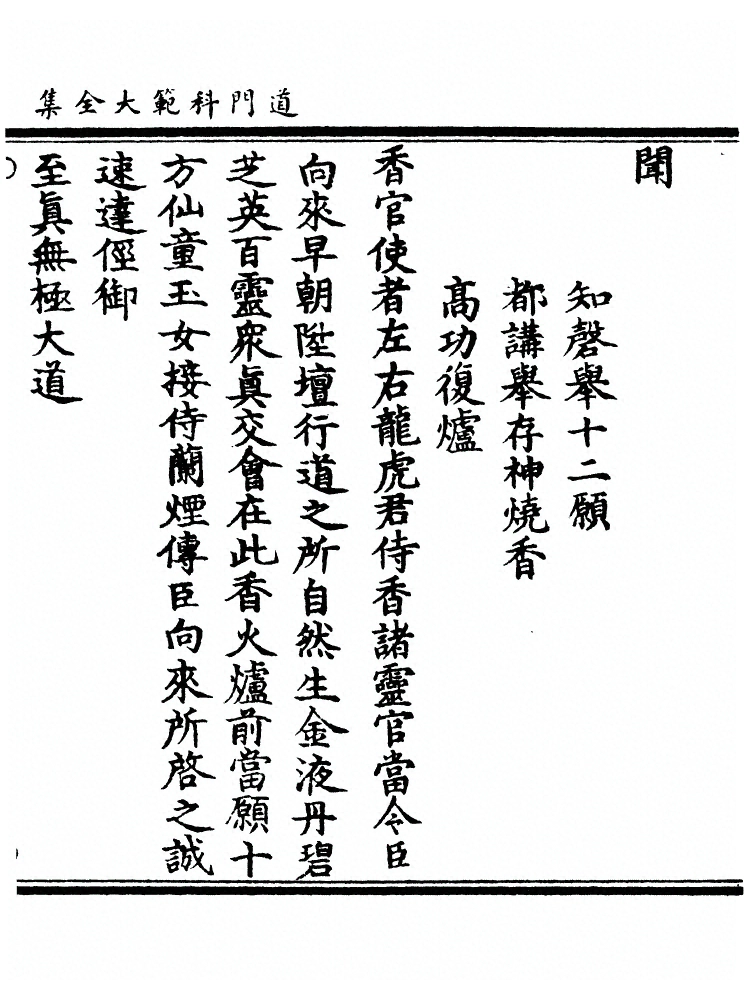 道門科範大全集
聞
知磬舉十二願
都講舉存神燒香
髙功復爐
香官使者左右龍虎君侍香諸靈官當令臣
向來早朝陞壇行道之所自然生金液丹碧
芝英百靈衆眞交會在此香火爐前當願十
方仙童玉女接侍蘭煙傳臣向來所啓之誠
速達徑御
至眞無極大道